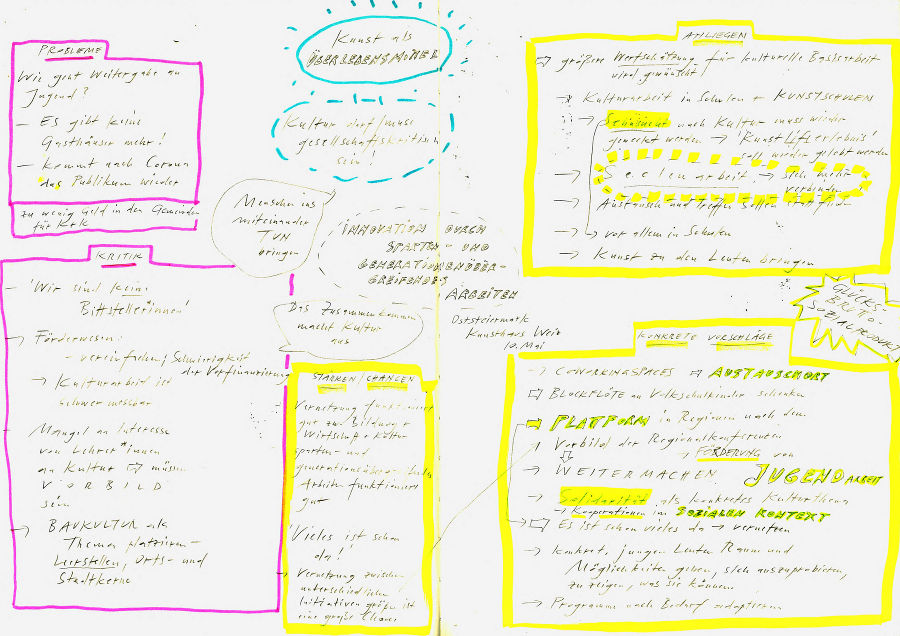 PROBLEME
Wie geht Weitergabe an
Jugend?
– Es gibt keine
Gasthäuser mehr!
– kommt nach Corona
das Publikum wieder
zu wenig Geld in den Gemeinden
für K+K
KRITIK
– 'Wir sind keine
Bittsteller*innen'
→ Förderwesen:
– vereinfachen, Schwierigkeit
der Vorfinanzierung
→ Kulturarbeit ist
schwer messbar
Mangel an Interesse
von Lehrer*innen
an Kultur ⇨ müssen
VORBILD
sein
→ BAUKULTUR als
Thema platzieren –
Leerstellen, Orts- und
Stadtkerne
Kunst als
ÜBERLEBENSMITTEL
Kultur darf/muss
gesellschaftskritisch
sein!
Menschen ins
miteinander
TUN
bringen
INNOVATION DURCH
SPARTEN- UND
GENERATIONENÜBER-
GREIFENDES
ARBEITEN
Das Zusammenkommen
macht Kultur
aus
Oststeiermark
Kunsthaus Weiz
10. Mai
STÄRKEN / CHANCEN
Vernetzung funktioniert
gut zw. Bildung +
Wirtschaft + Kultur
sparten- und
Arbeiten funktioniert
gut
'Vieles ist schon
da!'
– Vernetzung zwischen
unterschiedlichen
Initiativen größer ist
eine große Chance
ANLIEGEN
⇨ größere Wertschätzung für kulturelle Basisarbeit
wird gewünscht
→ Kulturarbeit in Schulen + KUNSTSCHULEN
→ Sehnsucht nach Kultur muss wieder
geweckt werden → 'Kunst Lifterlebnis'
soll wieder gelebt werden
→ Seelenarbeit → sich
verbinden
→ Austausch und Treffen sollen stattfinden
→ vor allem in Schulen
→ Kunst zu den Leuten bringen
GLÜCKS-
BRUTTO-
SOZIALPRODUKT
KONKRETE VORSCHLÄGE
→ COWORKINGSPACES ⇨ AUSTAUSCHORT
⇨ BLOCKFLÖTE an Volksschulkinder schenken
→ PLATTFORM in Regionen nach dem
→ Vorbild der Regionalkonferenzen
→ FÖRDERUNG von
→ WEITERMACHEN JUGENDARBEIT
→ Solidarität als konkretes Kulturthema
→ Kooperationen im SOZIALEN KONTEXT
⇨ Es ist schon vieles da → vernetzen
→ konkret, jungen Leuten Raum und
Möglichkeiten geben, sich auszuprobieren,
zu zeigen, was sie können
→ Programm nach Bedarf adaptieren